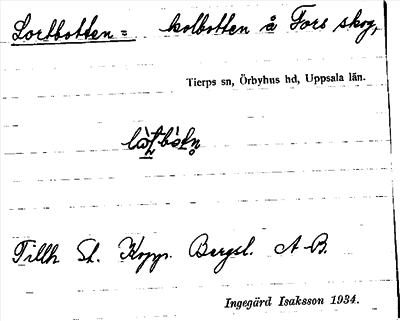 Lortbotten = kolbotten å Fors skog,
Tierps sn, Örbyhus hd, Uppsala län.
Tillh St. Kopp. Bergsl. A-B.
Ingegärd Isaksson 1934.